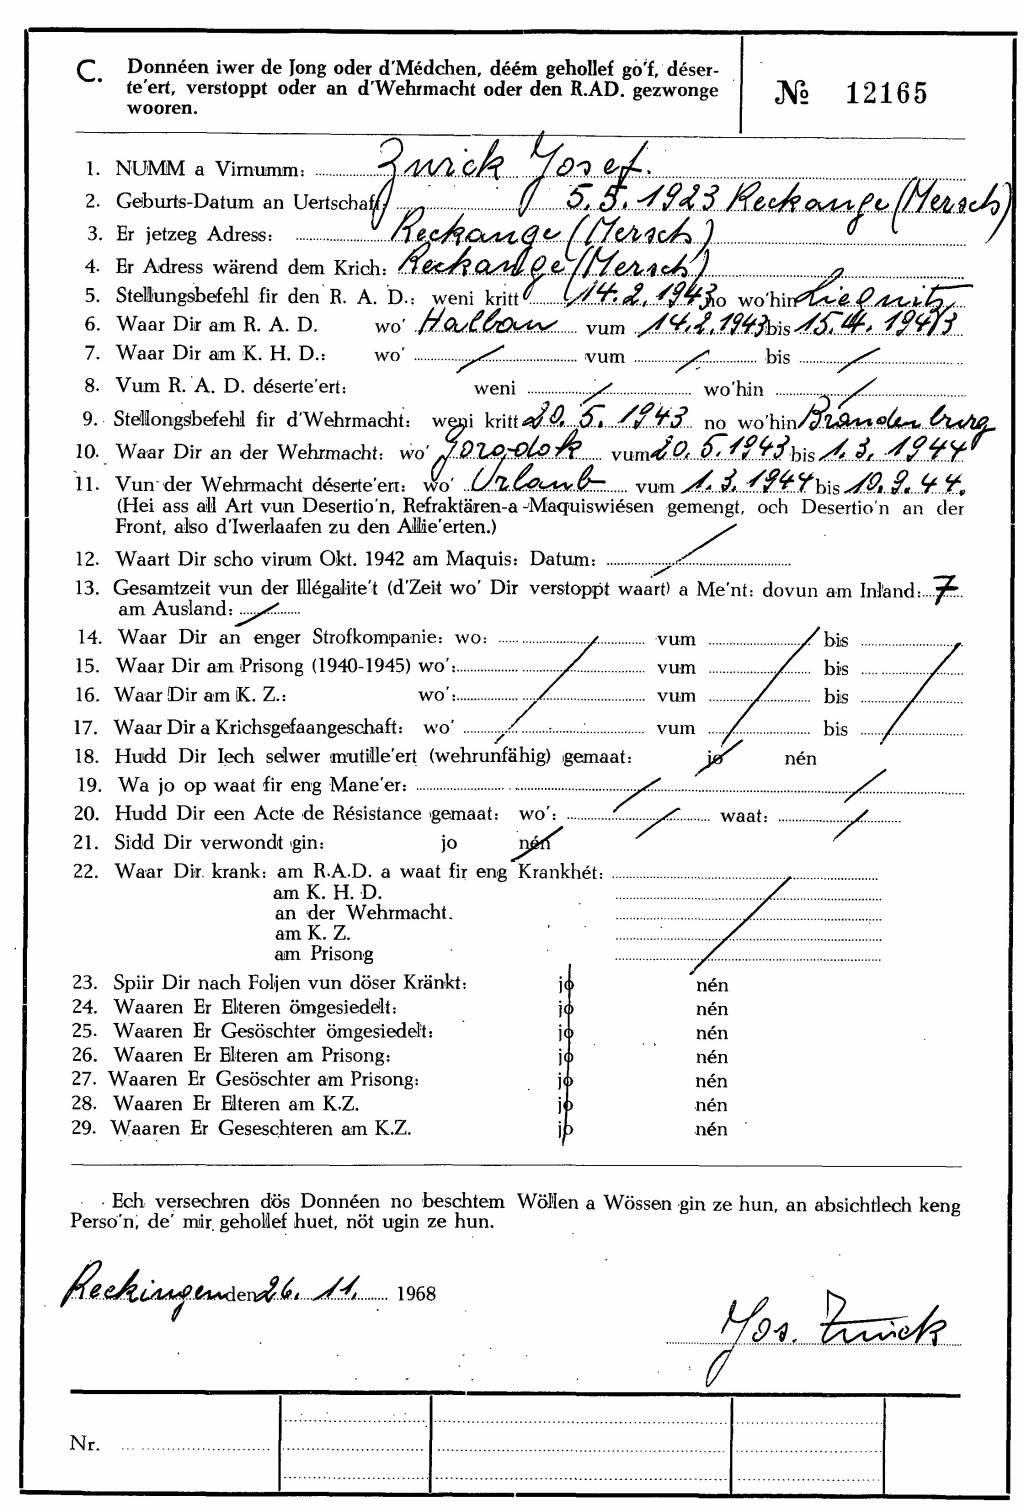 C. Donnéen iwer de Jong oder d'Médchen, déém gehollef go'f, déser-
te'ert, verstoppt oder an d'Wehrmacht oder den R.AD. gezwonge
wooren.
№ 12165
1. NUMM a Virnumm: Zwick Josef.
2. Geburts-Datum an Uertschaft: 5.5.1923 Reckange (Mersch)
3. Er jetzeg Adress: Reckange (Mersch)
4. Er Adress wärend dem Krich: Reckange (Mersch)
5. Stellungsbefehl fir den R. A. D.: weni kritt 14.2.1943 no wo'hin Liegnitz
6. Waar Dir am R. A. D. wo' Halbau vum 14.2.1943 bis 15.4.1943
7. Waar Dir am K. H. D.: wo' / vum / bis /
8. Vum R. A. D. déserte'ert: weni / wo'hin /
9. Stellongsbefehl fir d'Wehrmacht: weni kritt 20.5.1943 no wo'hin Brandenburg
10. Waar Dir an der Wehrmacht: wo' Gorodok vum 20.5.1943 bis 1.3.1944
11. Vun der Wehrmacht déserte'ert: wo' Urlaub vum 1.3.1944 bis 10.9.44.
(Hei ass all Art vun Desertio'n, Refraktären-a-Maquiswiésen gemengt, och Desertio'n an der
Front, also d'Iwerlaafen zu den Allie'erten.)
12. Waart Dir scho virum Okt. 1942 am Maquis: Datum: /
13. Gesamtzeit vun der Illégalite't (d'Zeit wo' Dir verstoppt waart) a Me'nt: dovun am Inland: 7
am Ausland: /
14. Waar Dir an enger Strofkompanie: wo: vum bis
15. Waar Dir am Prisong (1940-1945) wo': vum bis
16. Waar Dir am K. Z.: wo': vum bis
17. Waar Dir a Krichsgefaangeschaft: wo' vum bis
18. Hudd Dir Iech selwer mutille'ert (wehrunfähig) gemaat: jo nén
19. Wa jo op waat fir eng Mane'er:
20. Hudd Dir een Acte de Résistance gemaat: wo': waat:
21. Sidd Dir verwondt gin: jo nén
22. Waar Dir krank: am R.A.D. a waat fir eng Krankhét:
am K. H. D.
an der Wehrmacht.
am K. Z.
am Prisong
23. Spiir Dir nach Foljen vun döser Kränkt: jo nén
24. Waaren Er Elteren ömgesiedelt: jo nén
25. Waaren Er Gesöschter ömgesiedelt: jo nén
26. Waaren Er Elteren am Prisong: jo nén
27. Waaren Er Gesöschter am Prisong: jo nén
28. Waaren Er Elteren am K.Z. jo nén
29. Waaren Er Geseschteren am K.Z. jo nén
Ech versechren dös Donnéen no beschtem Wöllen a Wössen gin ze hun, an absichtlech keng
Perso'n, de' mir gehollef huet, nöt ugin ze hun.
Reckingen den 26. 11. 1968
Jos. Zwick
Nr.